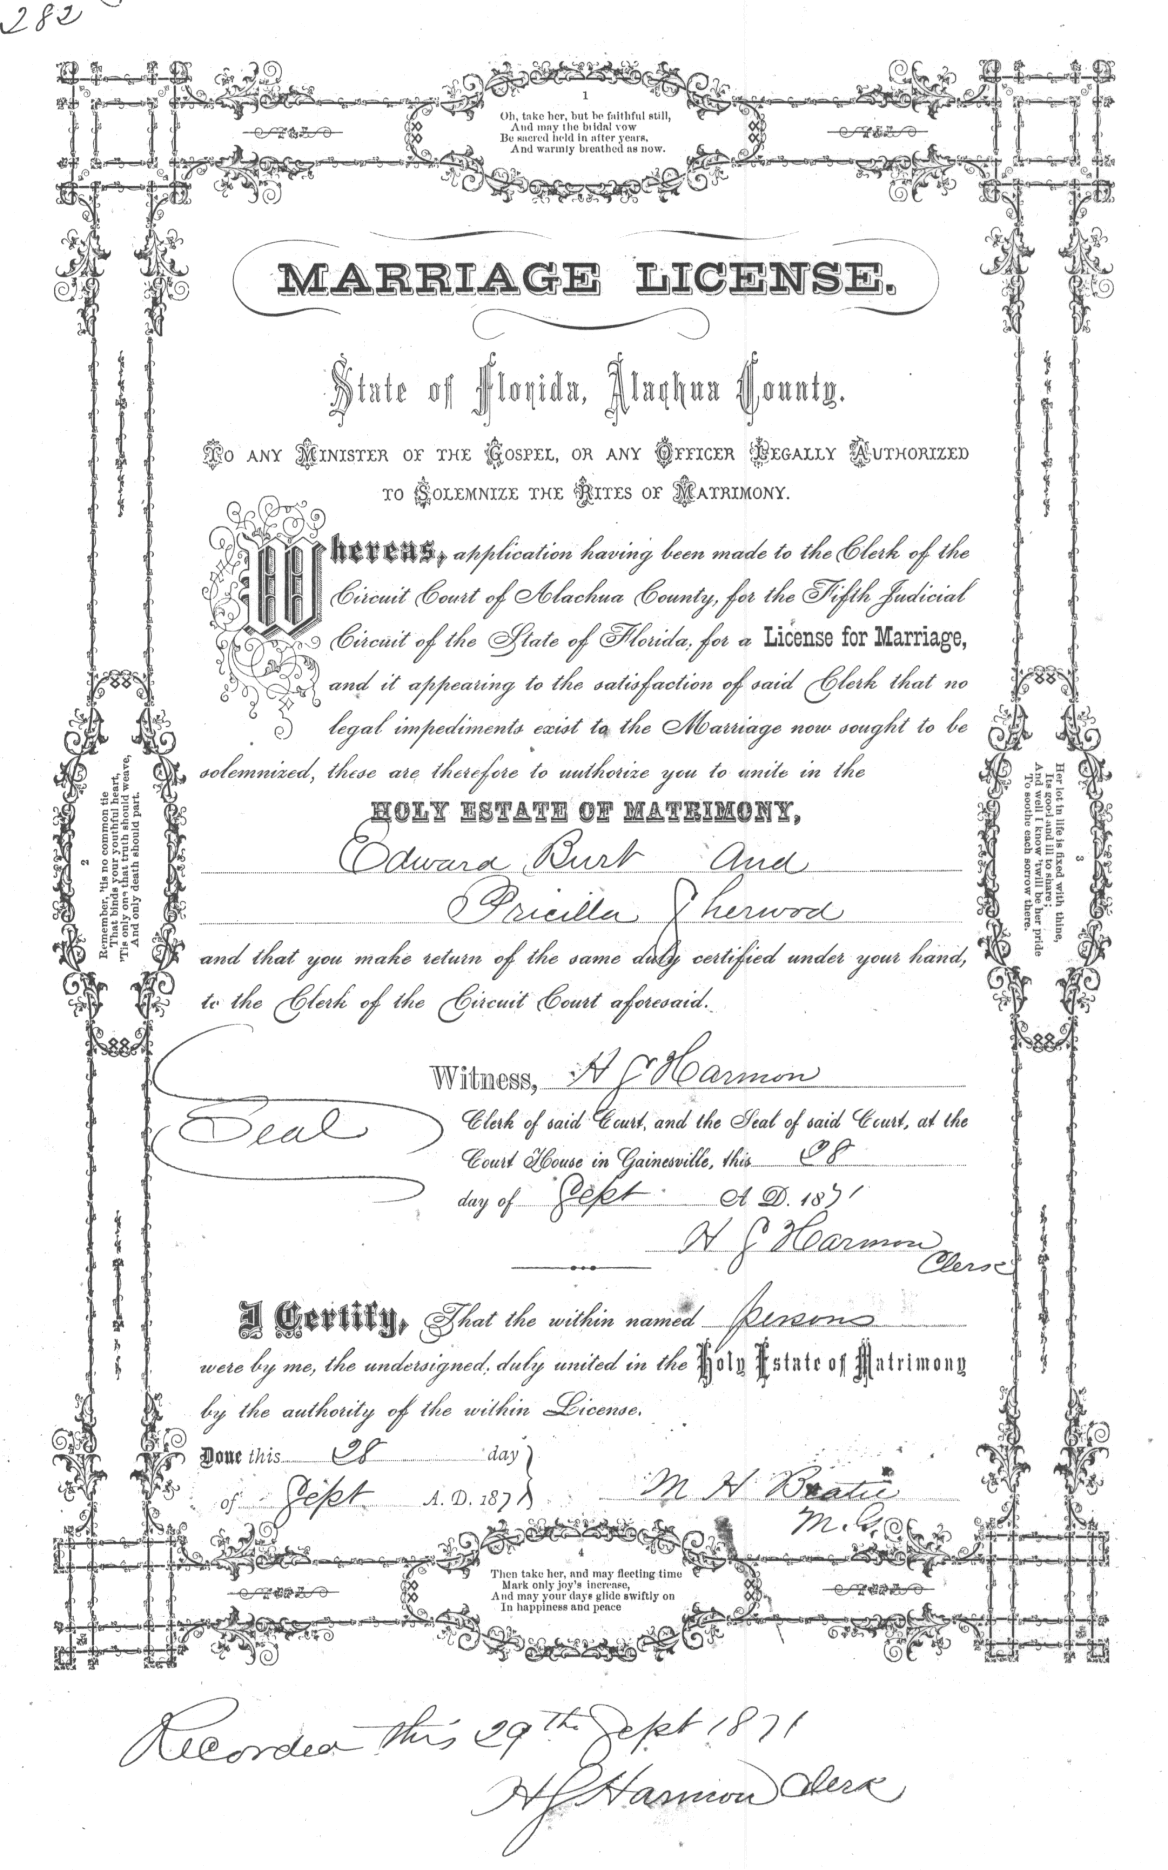 282
1
Oh, take her, but be faithful still,
And may the bridal vow
Be sacred held in after years,
And warmly breathed as now.
MARRIAGE LICENSE.
State of Florida, Alachua County.
TO ANY MINISTER OF THE GOSPEL, OR ANY OFFICER LEGALLY AUTHORIZED
TO SOLEMNIZE THE RITES OF MATRIMONY.
Whereas, application having been made to the Clerk of the
Circuit Court of Alachua County, for the Fifth Judicial
Circuit of the State of Florida, for a License for Marriage,
and it appearing to the satisfaction of said Clerk that no
legal impediments exist to the Marriage now sought to be
solemnized, these are therefore to authorize you to unite in the
HOLY ESTATE OF MATRIMONY,
Edward Burt And
Pricilla Sherwod
and that you make return of the same duly certified under your hand,
to the Clerk of the Circuit Court aforesaid.
Witness, H S Harmon
Seal
Clerk of said Court, and the Seal of said Court, at the
Court House in Gainesville, this 28
day of Sept A D. 1871
H S Harmon
Clerk
I Certify, That the within named persons
were by me, the undersigned, duly united in the Holy Estate of Matrimony
by the authority of the within License.
Done this 28 day
of Sept A. D. 1871
M H Beatie
M.G.
2
Remember, 'tis no common tie
That binds your youthful heart,
'Tis only one that truth should weave,
And only death should part.
3
Her lot in life is fixed with thine,
Its good and ill to share;
And well I know 'twill be her pride
To soothe each sorrow there.
4
Then take her, and may fleeting time
Mark only joy's increase,
And may your days glide swiftly on
In happiness and peace
Recorded this 29th Sept 1871
H S Harmon Clerk